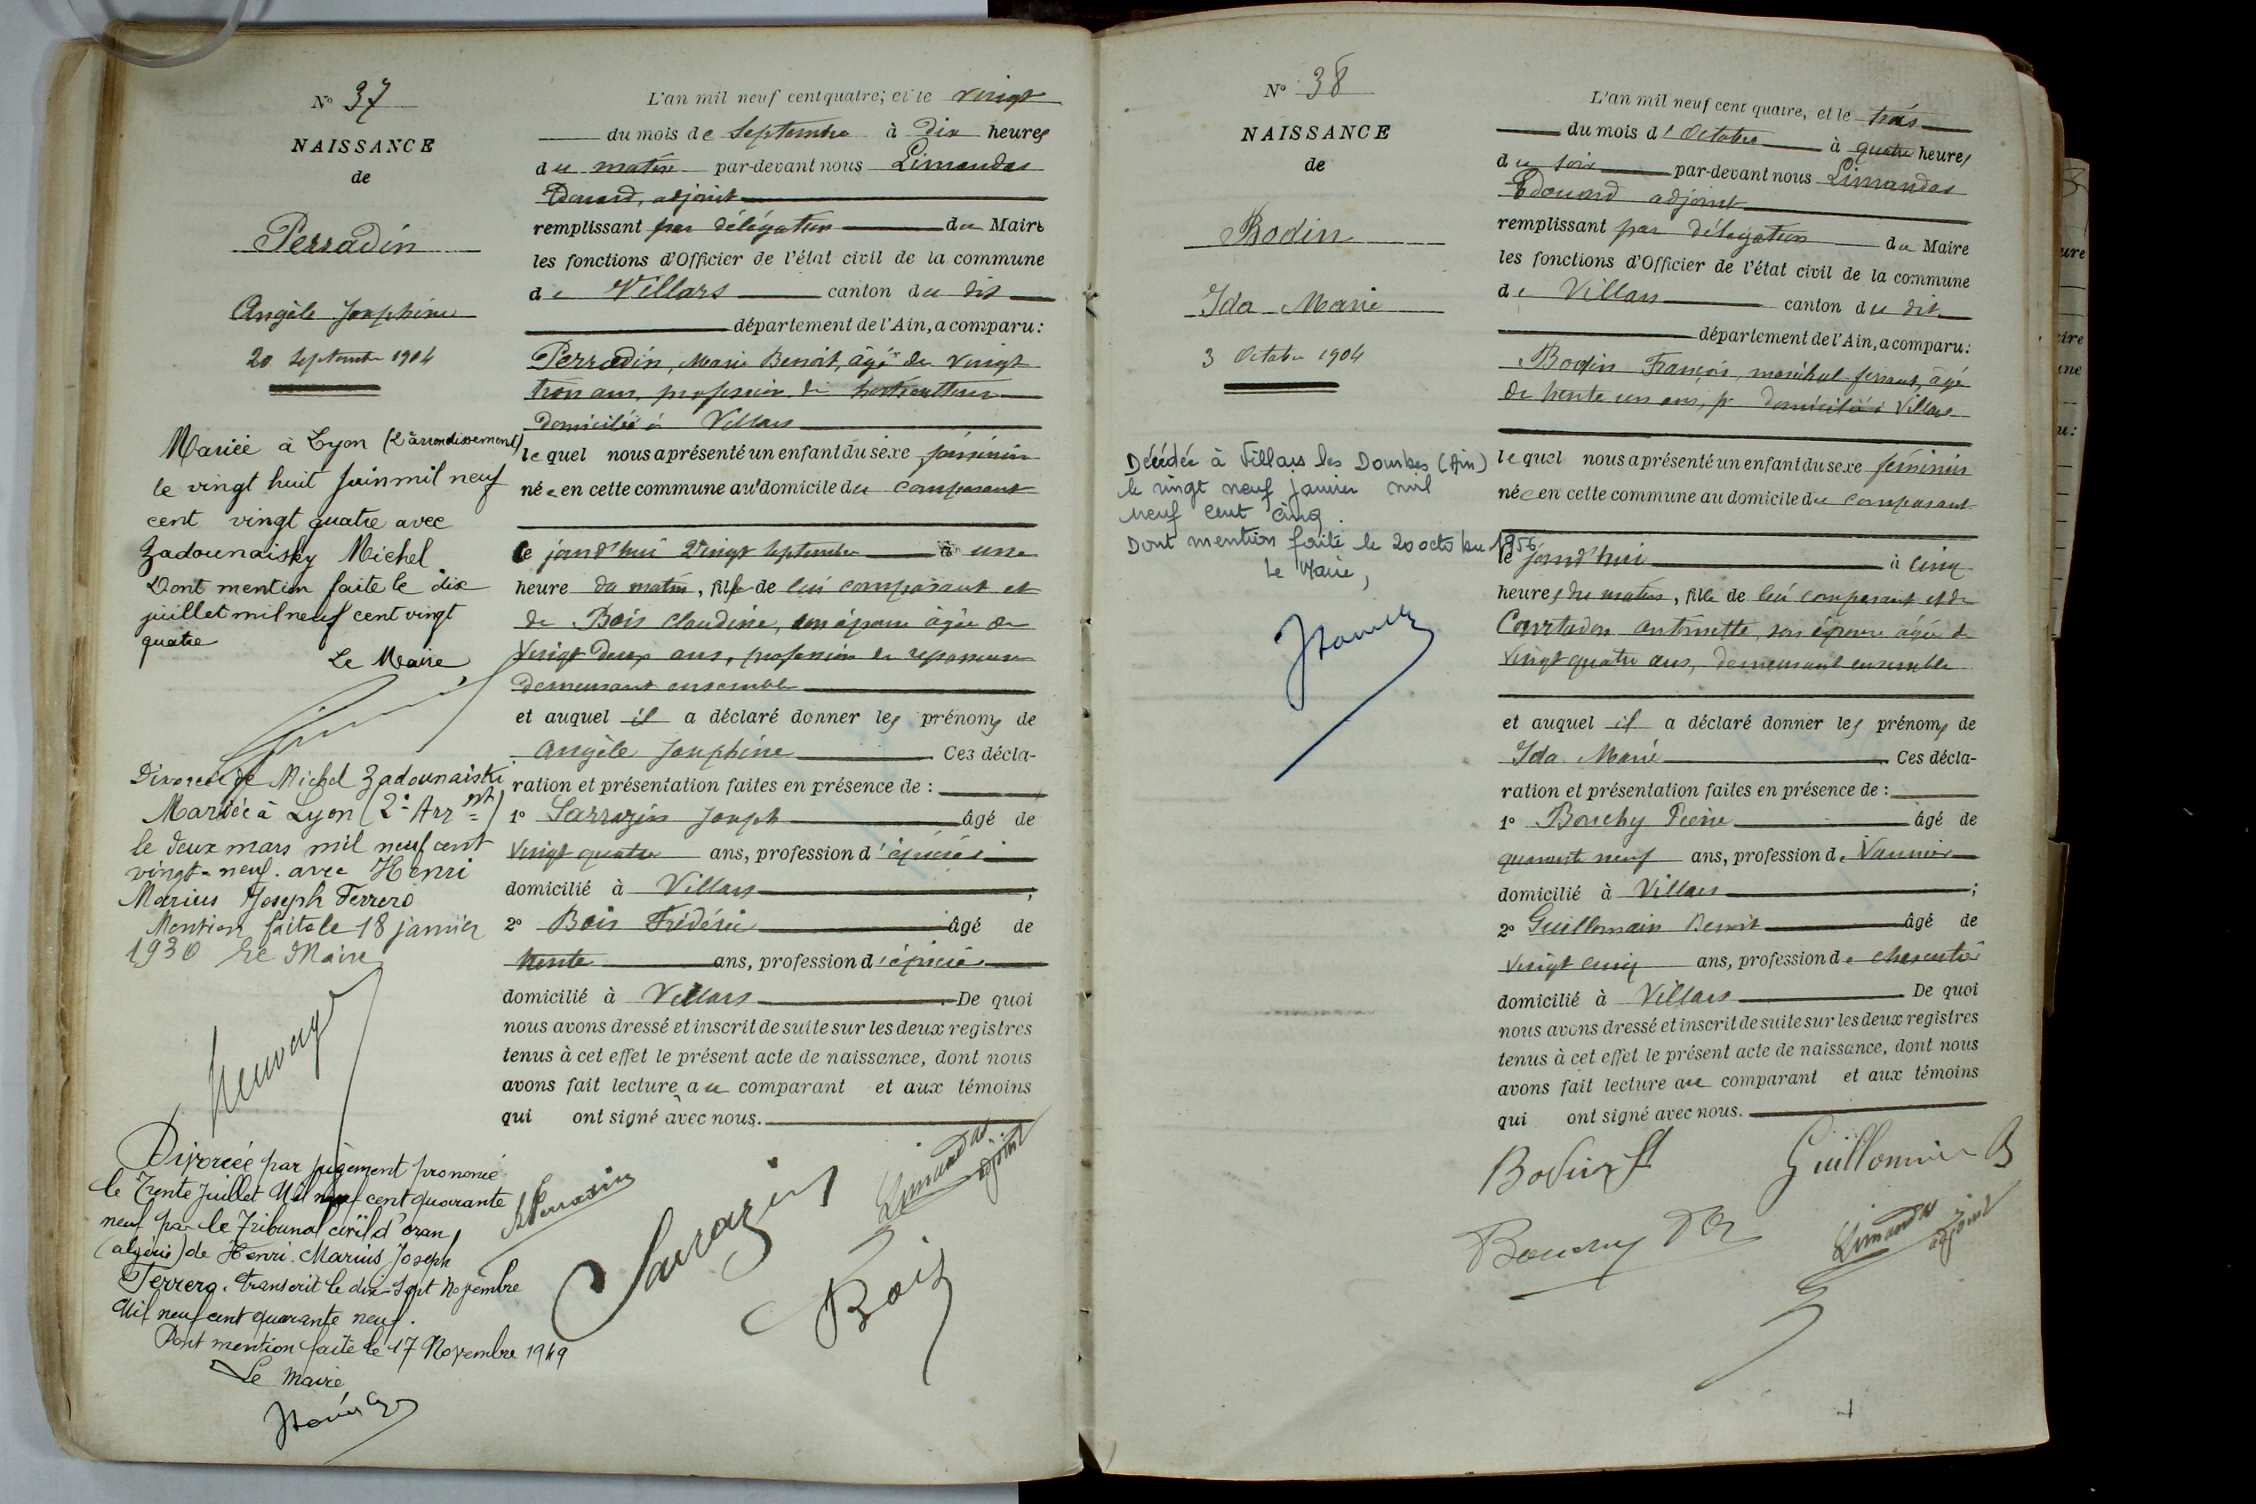 N° 37
NAISSANCE
de
Perradin
Angèle Josephine
20 Septembre 1904
Mariée à Lyon (2e arrondissement)
le vingt huit Juin mil neuf
cent vingt quatre avec
Zadounaisky Michel
Dont mention faite le dix
juillet mil neuf cent vingt
quatre
Le Maire
Divorcée de Michel Zadounaiski
Mariée à Lyon (2e Arrnt)
le deux mars mil neuf cent
vingt-neuf avec Henri
Marius Joseph Ferrero
Mention faite le 18 janvier
1930 Le Maire
Divorcée par jugement prononcé
le Trente Juillet Mil neuf cent quarante
neuf par le Tribunal civil d'oran
(algérie) de Henri Marius Joseph
Ferrero. transcrit le dix-Sept Novembre
Mil neuf cent quarante neuf.
Dont mention faite le 17 Novembre 1949
Le Maire
L'an mil neuf cent quatre, et le vingt
du mois de Septembre à dix heures
du matin par-devant nous Limandas
Edouard, adjoint
remplissant par délégation du Maire
les fonctions d'Officier de l'état civil de la commune
de Villars canton du dit
département de l'Ain, a comparu :
Perradin, Marie Benoit, âgé de vingt
trois ans, profession de horticulteur
domicilié à Villars
lequel nous a présenté un enfant du sexe féminin
née en cette commune au domicile du comparant
le jourd'hui vingt Septembre à une
heure du matin, fille de lui comparant et
de Bois Claudine, son épouse âgée de
vingt deux ans, profession de repasseuse
demeurant ensemble
et auquel il a déclaré donner les prénoms de
Angèle Josephine Ces décla-
ration et présentation faites en présence de :
1° Sarrazin Joseph âgé de
vingt quatre ans, profession d'épicier
domicilié à Villars ;
2° Bois Frédéric âgé de
trente ans, profession d'épicier
domicilié à Villars De quoi
nous avons dressé et inscrit de suite sur les deux registres
tenus à cet effet le présent acte de naissance, dont nous
avons fait lecture au comparant et aux témoins
qui ont signé avec nous.
Perradin
Sarrazin
Limandas
adjoint
Bois
N° 38
NAISSANCE
de
Bodin
Ida Marie
3 Octobre 1904
Décédée à Villars les Dombes (Ain)
le vingt neuf janvier mil
neuf cent cinq.
Dont mention faite le 20 octobre 1956
Le Maire,
L'an mil neuf cent quatre, et le trois
du mois d'Octobre à quatre heures
du soir par-devant nous Limandas
Edouard adjoint
remplissant par délégation du Maire
les fonctions d'Officier de l'état civil de la commune
de Villars canton du dit
département de l'Ain, a comparu :
Bodin François, maréchal-ferrant, âgé
de trente un ans, domicilié à Villars
lequel nous a présenté un enfant du sexe féminin
née en cette commune au domicile du comparant
le jourd'hui à cinq
heures du matin, fille de lui comparant et de
Courtadon Antoinette, son épouse âgée de
vingt quatre ans, demeurant ensemble
et auquel il a déclaré donner les prénoms de
Ida Marie Ces décla-
ration et présentation faites en présence de :
1° Bouchy Pierre âgé de
quarante neuf ans, profession de Vannier
domicilié à Villars ;
2° Guillomain Benoit âgé de
vingt cinq ans, profession de charcutier
domicilié à Villars De quoi
nous avons dressé et inscrit de suite sur les deux registres
tenus à cet effet le présent acte de naissance, dont nous
avons fait lecture au comparant et aux témoins
qui ont signé avec nous.
Bodin
Guillomin B
Limandas
adjoint